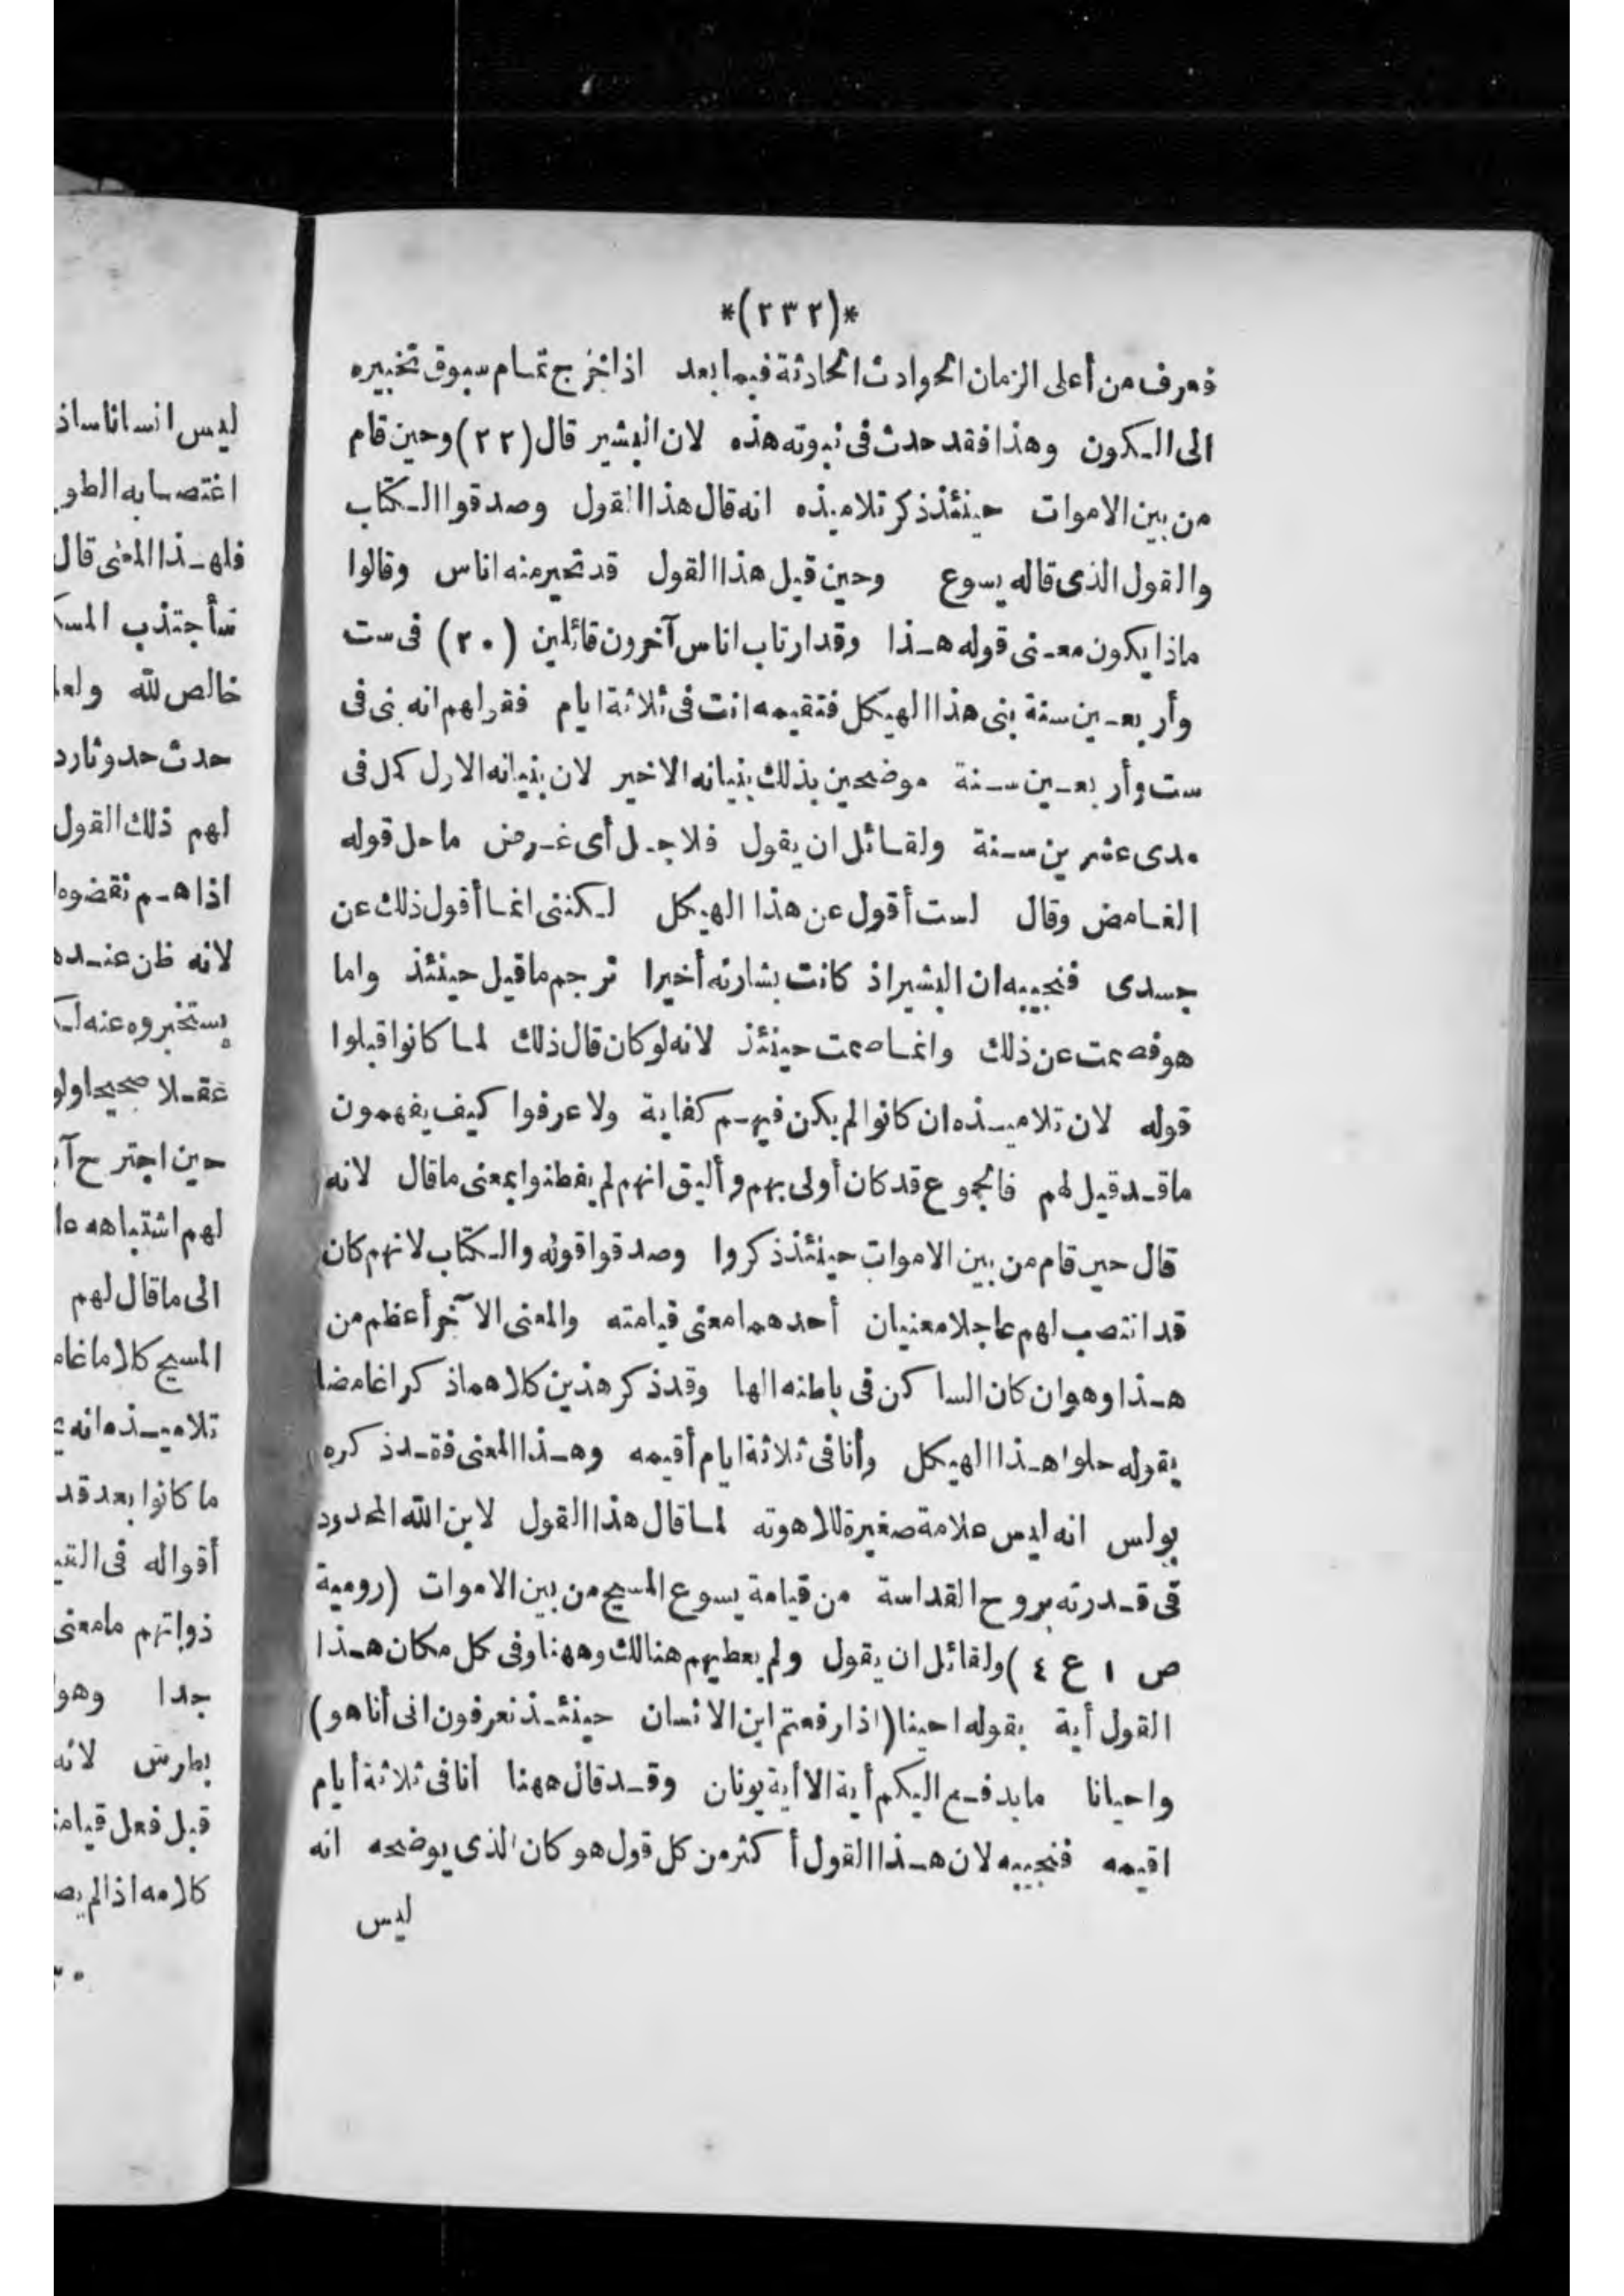 *(٢٣٢)*
فعرف من أعلى الزمان الحوادث الحادثة فيما بعد اذا خرج تمام سبوق تخبيره
الى الكون وهذا فقد حدث فى نبوته هذه لان البشير قال (٢٢) وحين قام
من بين الاموات حينئذ ذكر تلاميذه انه قال هذا القول وصدقوا الكتاب
والقول الذى قاله يسوع وحين قيل هذا القول قد تحير منه اناس وقالوا
ماذا يكون معنى قوله هذا وقد ارتاب اناس آخرون قائلين (٢٠) فى ست
وأربعين سنة بنى هذا الهيكل فتقيمه انت فى ثلاثة ايام فقولهم انه بنى فى
ست وأربعين سنة موضحين بذلك بنيانه الاخير لان بنيانه الاول كمل فى
مدى عشرين سنة ولقائل ان يقول فلاجل أى غرض ما حل قوله
الغامض وقال لست أقول عن هذا الهيكل لكننى انما أقول ذلك عن
جسدى فنجيبه ان البشير اذ كانت بشارته أخيرا ترجم ما قيل حينئذ واما
هو فصمت عن ذلك وانما صمت حينئذ لانه لو كان قال ذلك لما كانوا قبلوا
قوله لان تلاميذه ان كانوا لم يكن فيهم كفاية ولا عرفوا كيف يفهمون
ما قد قيل لهم فالجموع قد كان أولى بهم وأليق انهم لم يفطنوا بمعنى ما قال لانه
قال حين قام من بين الاموات حينئذ ذكروا وصدقوا قوله والكتاب لانهم كان
قد انتصب لهم عاجلا معنيان أحدهما معنى قيامته والمعنى الآخر أعظم من
هذا وهو ان كان الساكن فى باطنه الها وقد ذكر هذين كلاهما ذكرا غامضا
بقوله حلوا هذا الهيكل وأنا فى ثلاثة ايام أقيمه وهذا المعنى فقد ذكره
بولس انه ليس علامة صغيرة للاهوته لما قال هذا القول لابن الله المحدود
فى قدرته بروح القداسة من قيامة يسوع المسيح من بين الاموات (رومية
ص ١ ع ٤) ولقائل ان يقول ولم يعطيهم هنالك وههنا وفى كل مكان هذا
القول أية بقوله احينا (اذا رفعتم ابن الانسان حينئذ تعرفون انى أنا هو)
واحيانا ما يدفع اليكم أية الا أية يونان وقد قال ههنا أنا فى ثلاثة أيام
اقيمه فنجيبه لان هذا القول أكثر من كل قول هو كان الذى يوضحه انه
ليس
ليس انسانا ساذ
اغتصابه الطو
فلهذا المعنى قال
سأجتذب المسك
خالص لله ولعل
حدث حدوثا رد
لهم ذلك القول
اذا هم نقضوه
لانه ظن عنده
يستخبروه عنه لك
عقلا صحيحا ولو
حين اجترح آ
لهم اشتباهه عا
الى ما قال لهم
المسيح كلاما غام
تلاميذه انه ع
ما كانوا بعد قد
أقواله فى القي
ذواتهم ما معنى
جدا وهو
بطرس لانه
قبل فعل قيامة
كلامه اذا لم يص